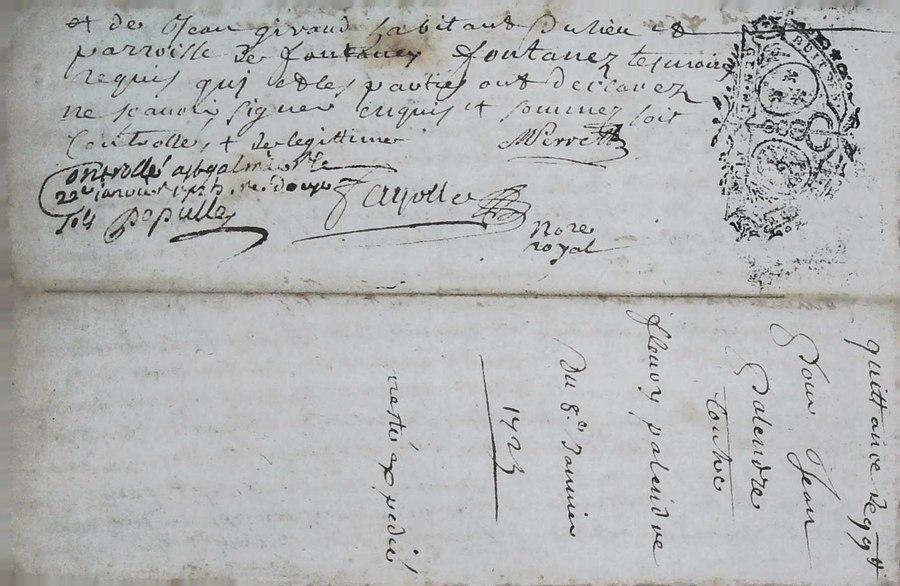 et de Jean giraud habitant du lieu et
parroisse de fontanez fontanez tesmoins
requis qui et les parties ont declarez
ne scavoir signer enquis et sommez soit
Controlles et
Perrett
Controllé a stgalmier le
22e janvier 1723 re douze
sols pepulles
Fayolle
Nore
royal
quittance de
Pour Jean
Palendre
Contre
fleury palendre
du 8e Janvier
1723
expedié